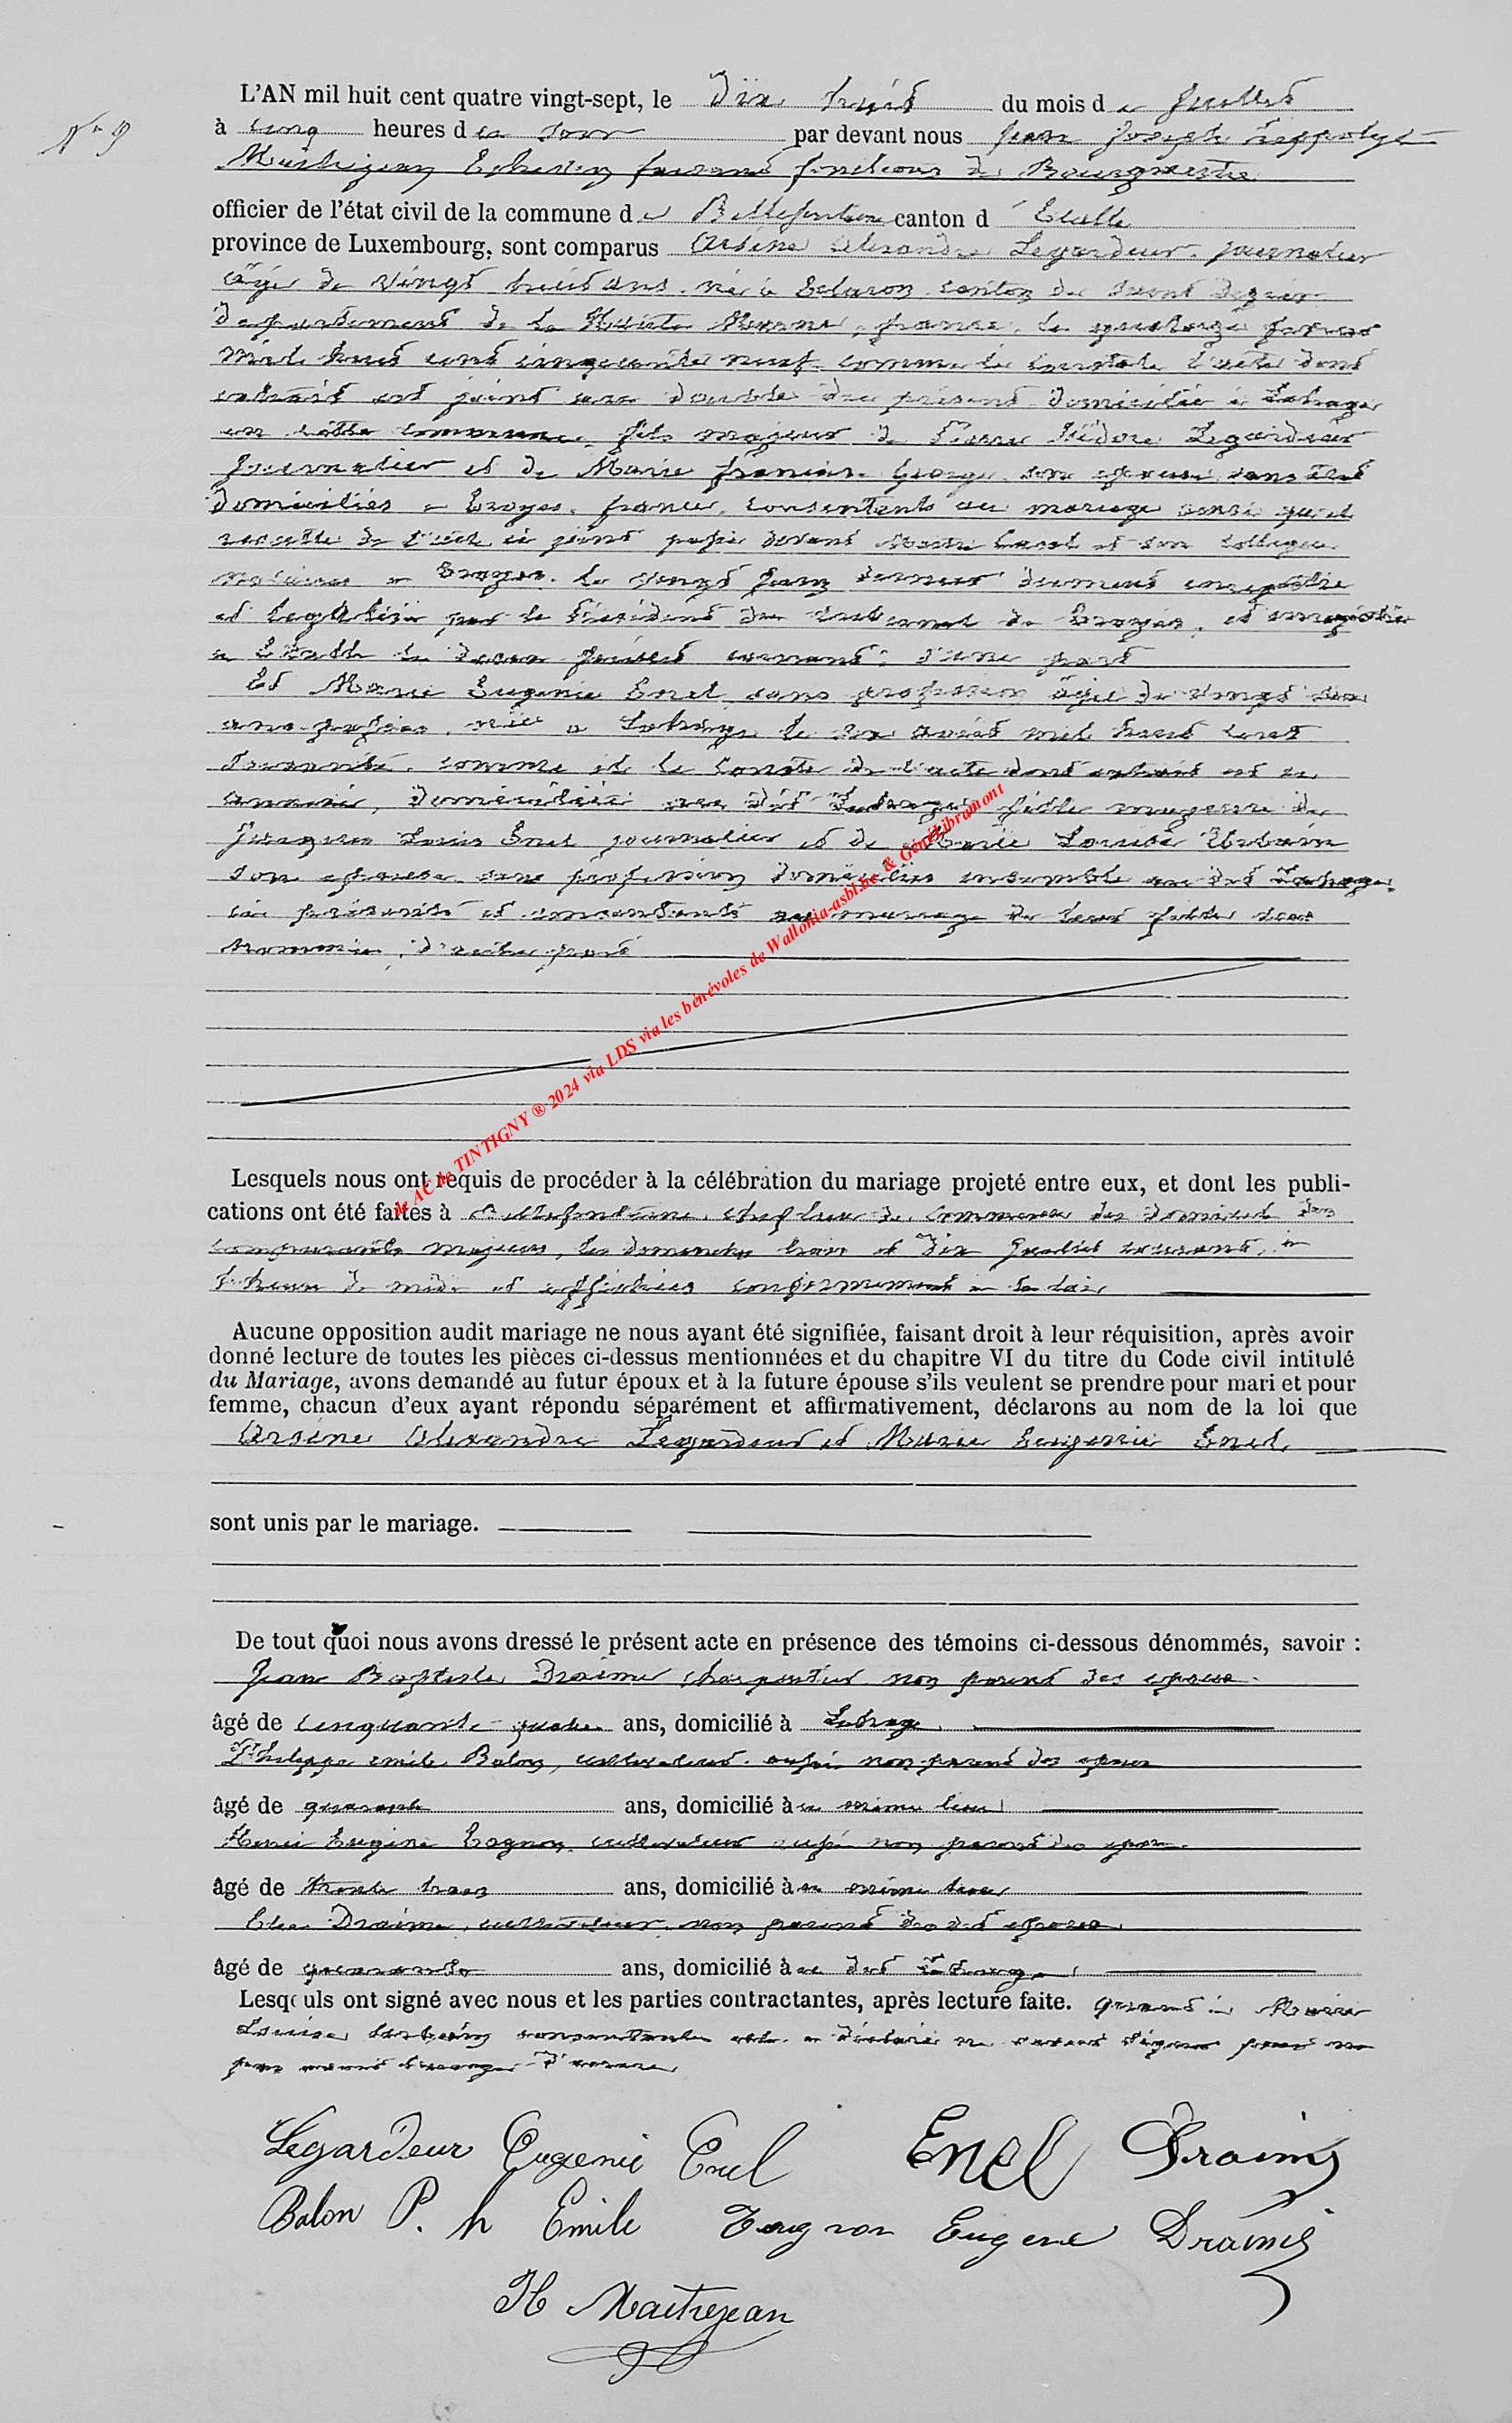 N° 9
L'AN mil huit cent quatre vingt-sept, le Dix huit du mois de Juillet
à cinq heures du soir par devant nous Jean Joseph Hippolyte
Maitrejean Echevin faisant fonctions de Bourgmestre
officier de l'état civil de la commune de Bellefontaine canton d'Etalle
province de Luxembourg, sont comparus Arsène Alexandre Legardeur, journalier
âgé de vingt huit ans, né à Eclaron canton de Saint Dizier
département de la Haute Marne, france, le quatorze
mil huit cent cinquante neuf comme le constate l'acte dont
extrait est joint au double du présent domicilié à Lahage
en cette commune, fils majeur de Pierre Isidore Legardeur
journalier et de Marie françoise George son épouse sans état
domiciliés à Troyes, france, consentants au mariage ainsi qu'il
résulte de l'acte ci joint passé devant Maître et son collègue
notaires à Troyes, le vingt Juin dernier dument enregistré
et légalisé par le Président du tribunal de Troyes, et enregistré
à Etalle le Juillet courant, d'une part
Et Marie Eugénie Enel sans profession âgée de vingt six
ans passés, née à Lahage le six août mil huit cent
soixante, comme il le conste de l'acte dont extrait est ci
annexé, domiciliée au dit Lahage fille majeure de
Jacques Louis Enel journalier et de Marie Louise Urbain
son épouse sans profession domiciliés ensemble au dit Lahage
ici présents et consentants au mariage de leur fille sus
nommée, d'autre part
de AC de TINTIGNY ® 2024 via LDS via les bénévoles de Wallonia-asbl.be & GénéLibramont
Lesquels nous ont requis de procéder à la célébration du mariage projeté entre eux, et dont les publi-
cations ont été faites à Bellefontaine, chef lieu de commune du domicile des
comparants majeurs, les dimanches trois et dix Juillet courant, à
l'heure de midi et affichées conformément à la loi
Aucune opposition audit mariage ne nous ayant été signifiée, faisant droit à leur réquisition, après avoir
donné lecture de toutes les pièces ci-dessus mentionnées et du chapitre VI du titre du Code civil intitulé
du Mariage, avons demandé au futur époux et à la future épouse s'ils veulent se prendre pour mari et pour
femme, chacun d'eux ayant répondu séparément et affirmativement, déclarons au nom de la loi que
Arsène Alexandre Legardeur et Marie Eugénie Enel,
sont unis par le mariage.
De tout quoi nous avons dressé le présent acte en présence des témoins ci-dessous dénommés, savoir :
Jean Baptiste Draime charpentier non parent des époux
âgé de cinquante quatre ans, domicilié à Lahage
Philippe emile Balon, cultivateur aussi non parent des époux
âgé de quarante ans, domicilié à u même lieu
Henri Eugène Tagnon, cultivateur aussi non parent des époux
âgé de trente trois ans, domicilié à u même lieu
Draime, cultivateur, non parent des dits époux
âgé de quarante ans, domicilié à u dit Lahage
Lesquels ont signé avec nous et les parties contractantes, après lecture faite. quant à Marie
Louise Urbain consentante elle a déclaré ne savoir signer pour ne
pas avoir l'usage d'écrire
Legardeur Eugenie Enel Enel Draime
Balon P. h Emile Tagnon Eugene Draime
H Maitrejean